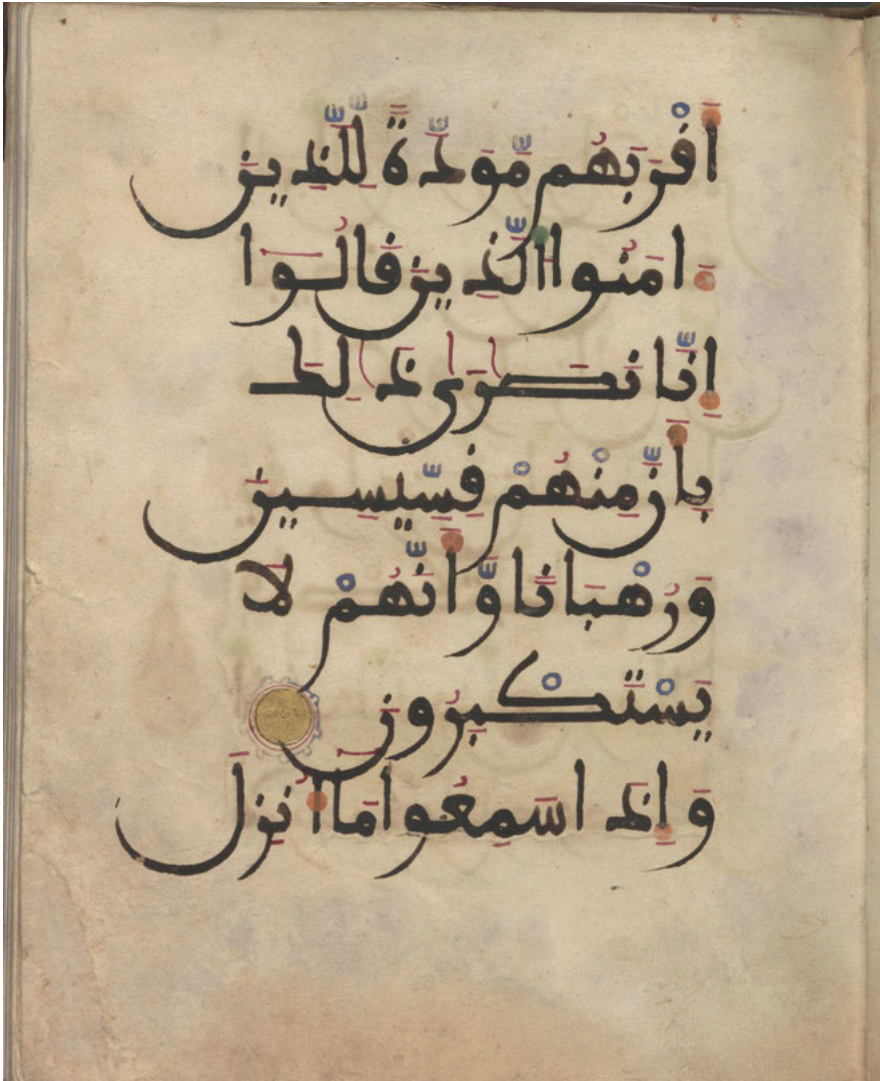 أَقْرَبَهُم مَّوَدَّةً لِّلَّذِينَ
ءَامَنُوا الَّذِينَ قَالُوا
إِنَّا نَصَٰرَىٰ ذَٰلِكَ
بِأَنَّ مِنْهُمْ قِسِّيسِينَ
وَرُهْبَانًا وَّأَنَّهُمْ لَا
يَسْتَكْبِرُونَ
وَإِذَا سَمِعُوا مَا أُنزِلَ